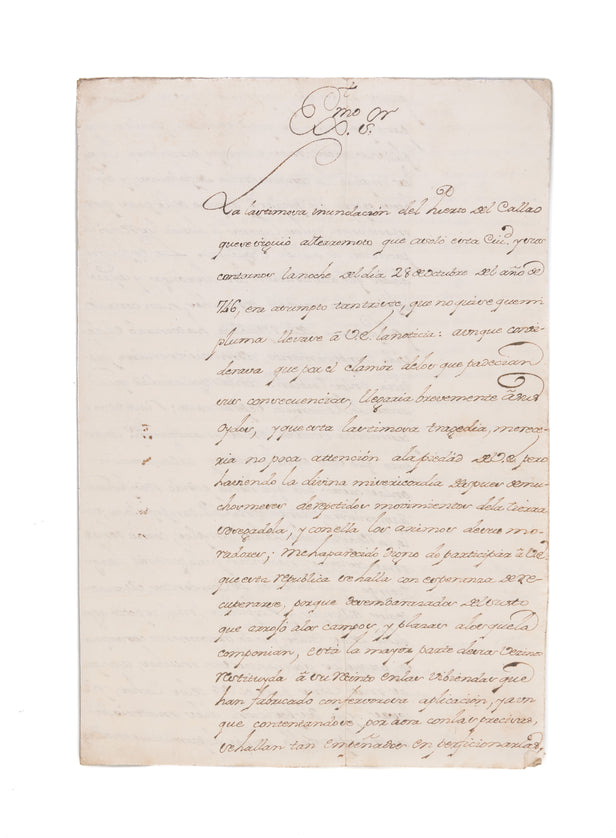 Exmo Sr
S.
La lastimosa inundacion del Puerto del Callao
que se siguió al terremoto que asoló esta Ciud. y sus
contornos la noche del dia 28 de octubre del año de
746, era asumpto tan triste, que no quise que mi
pluma llevase â V.E. la noticia: aunque consi-
derava que por el clamor de los que padecian
sus consecuencias, llegaria brevemente â sus
oydos, y que esta lastimosa tragedia, merece-
ria no poca attención a la piedad de V.E. pero
haviendo la divina misericordia despues de mu-
chos meses de repetidos movimientos de la tierra
sosegadola, y con ella los animos de sus mo-
radores; me ha parecido digno de participar â V.E.
que esta republica se halla con esperanza de re-
cuperarse, porque desembarazados del susto
que arrojó a los campos, y plazas a los que la
componian, está la mayor parte de sus vecinos
restituyda â su recinto en las viviendas que
han fabricado con fervorosa aplicación, y aun
que contentandose por aora con las precisas,
se hallan tan empeñados en perficionarlas,